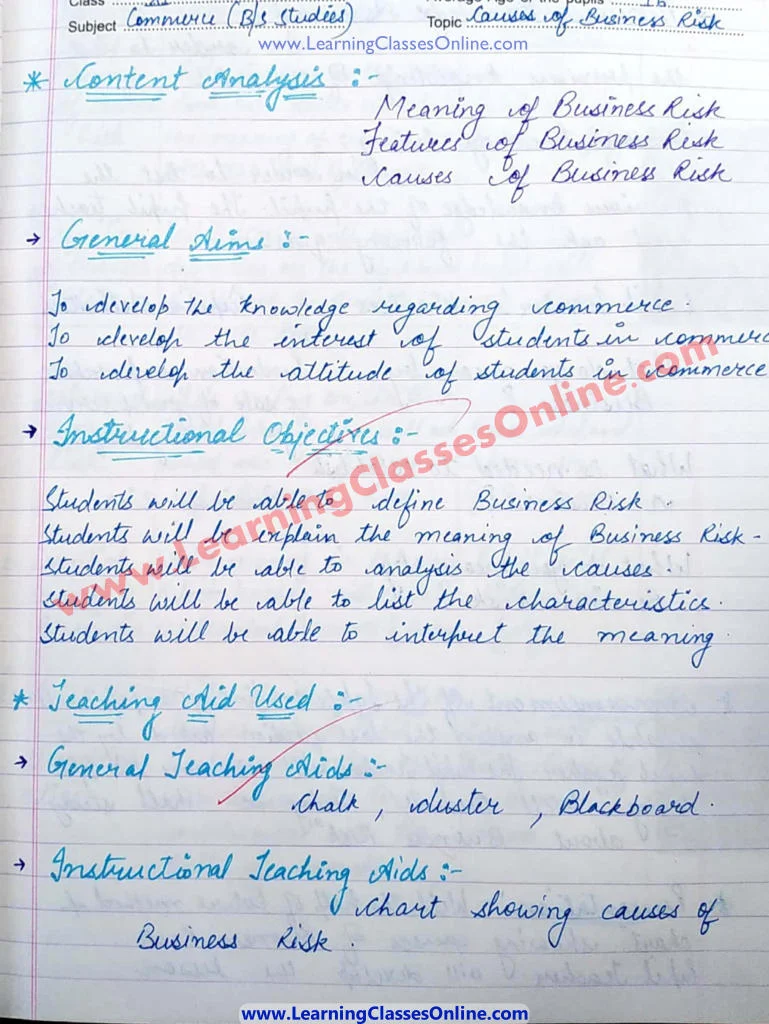 Class
Subject Commerce (B/S Studies) Topic Causes of Business Risk
www.LearningClassesOnline.com
* Content Analysis :-
Meaning of Business Risk
Features of Business Risk
Causes of Business Risk
→ General Aims :-
To develop the knowledge regarding commerce.
To develop the interest of students in commerc
To develop the attitude of students in commerce
→ Instructional Objectives :-
www.LearningClassesOnline.com
Students will be able to define Business Risk.
Students will be explain the meaning of Business Risk-
Students will be able to analysis the causes.
Students will be able to list the characteristics.
Students will be able to interpret the meaning.
* Teaching Aid Used :-
→ General Teaching Aids :-
Chalk, duster, Blackboard.
→ Instructional Teaching Aids :-
Chart showing causes of
Business Risk.
www.LearningClassesOnline.com